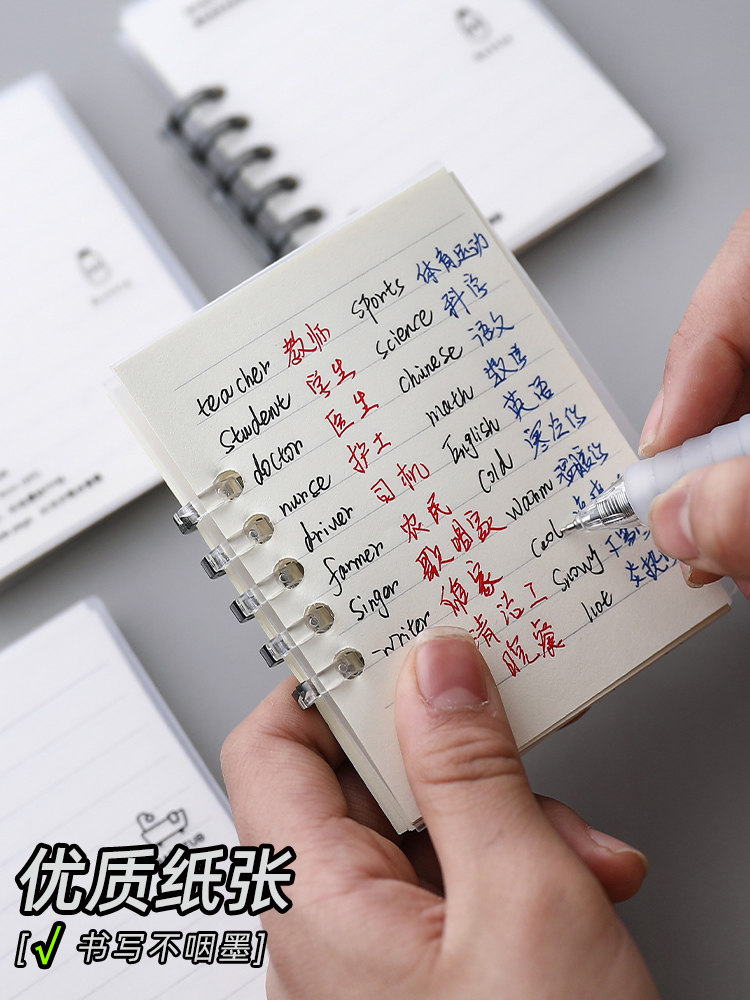 teacher 教师 sports 体育运动
student 学生 science 科学
doctor 医生 chinese 语文
nurse 护士 math 数学
driver 司机 English 英语
farmer 农民 cold 寒冷的
singer 歌唱家 warm 温暖的
writer 作家 cool
清洁工 snowy
警察 hot 炎热
优质纸张
[√ 书写不咽墨]